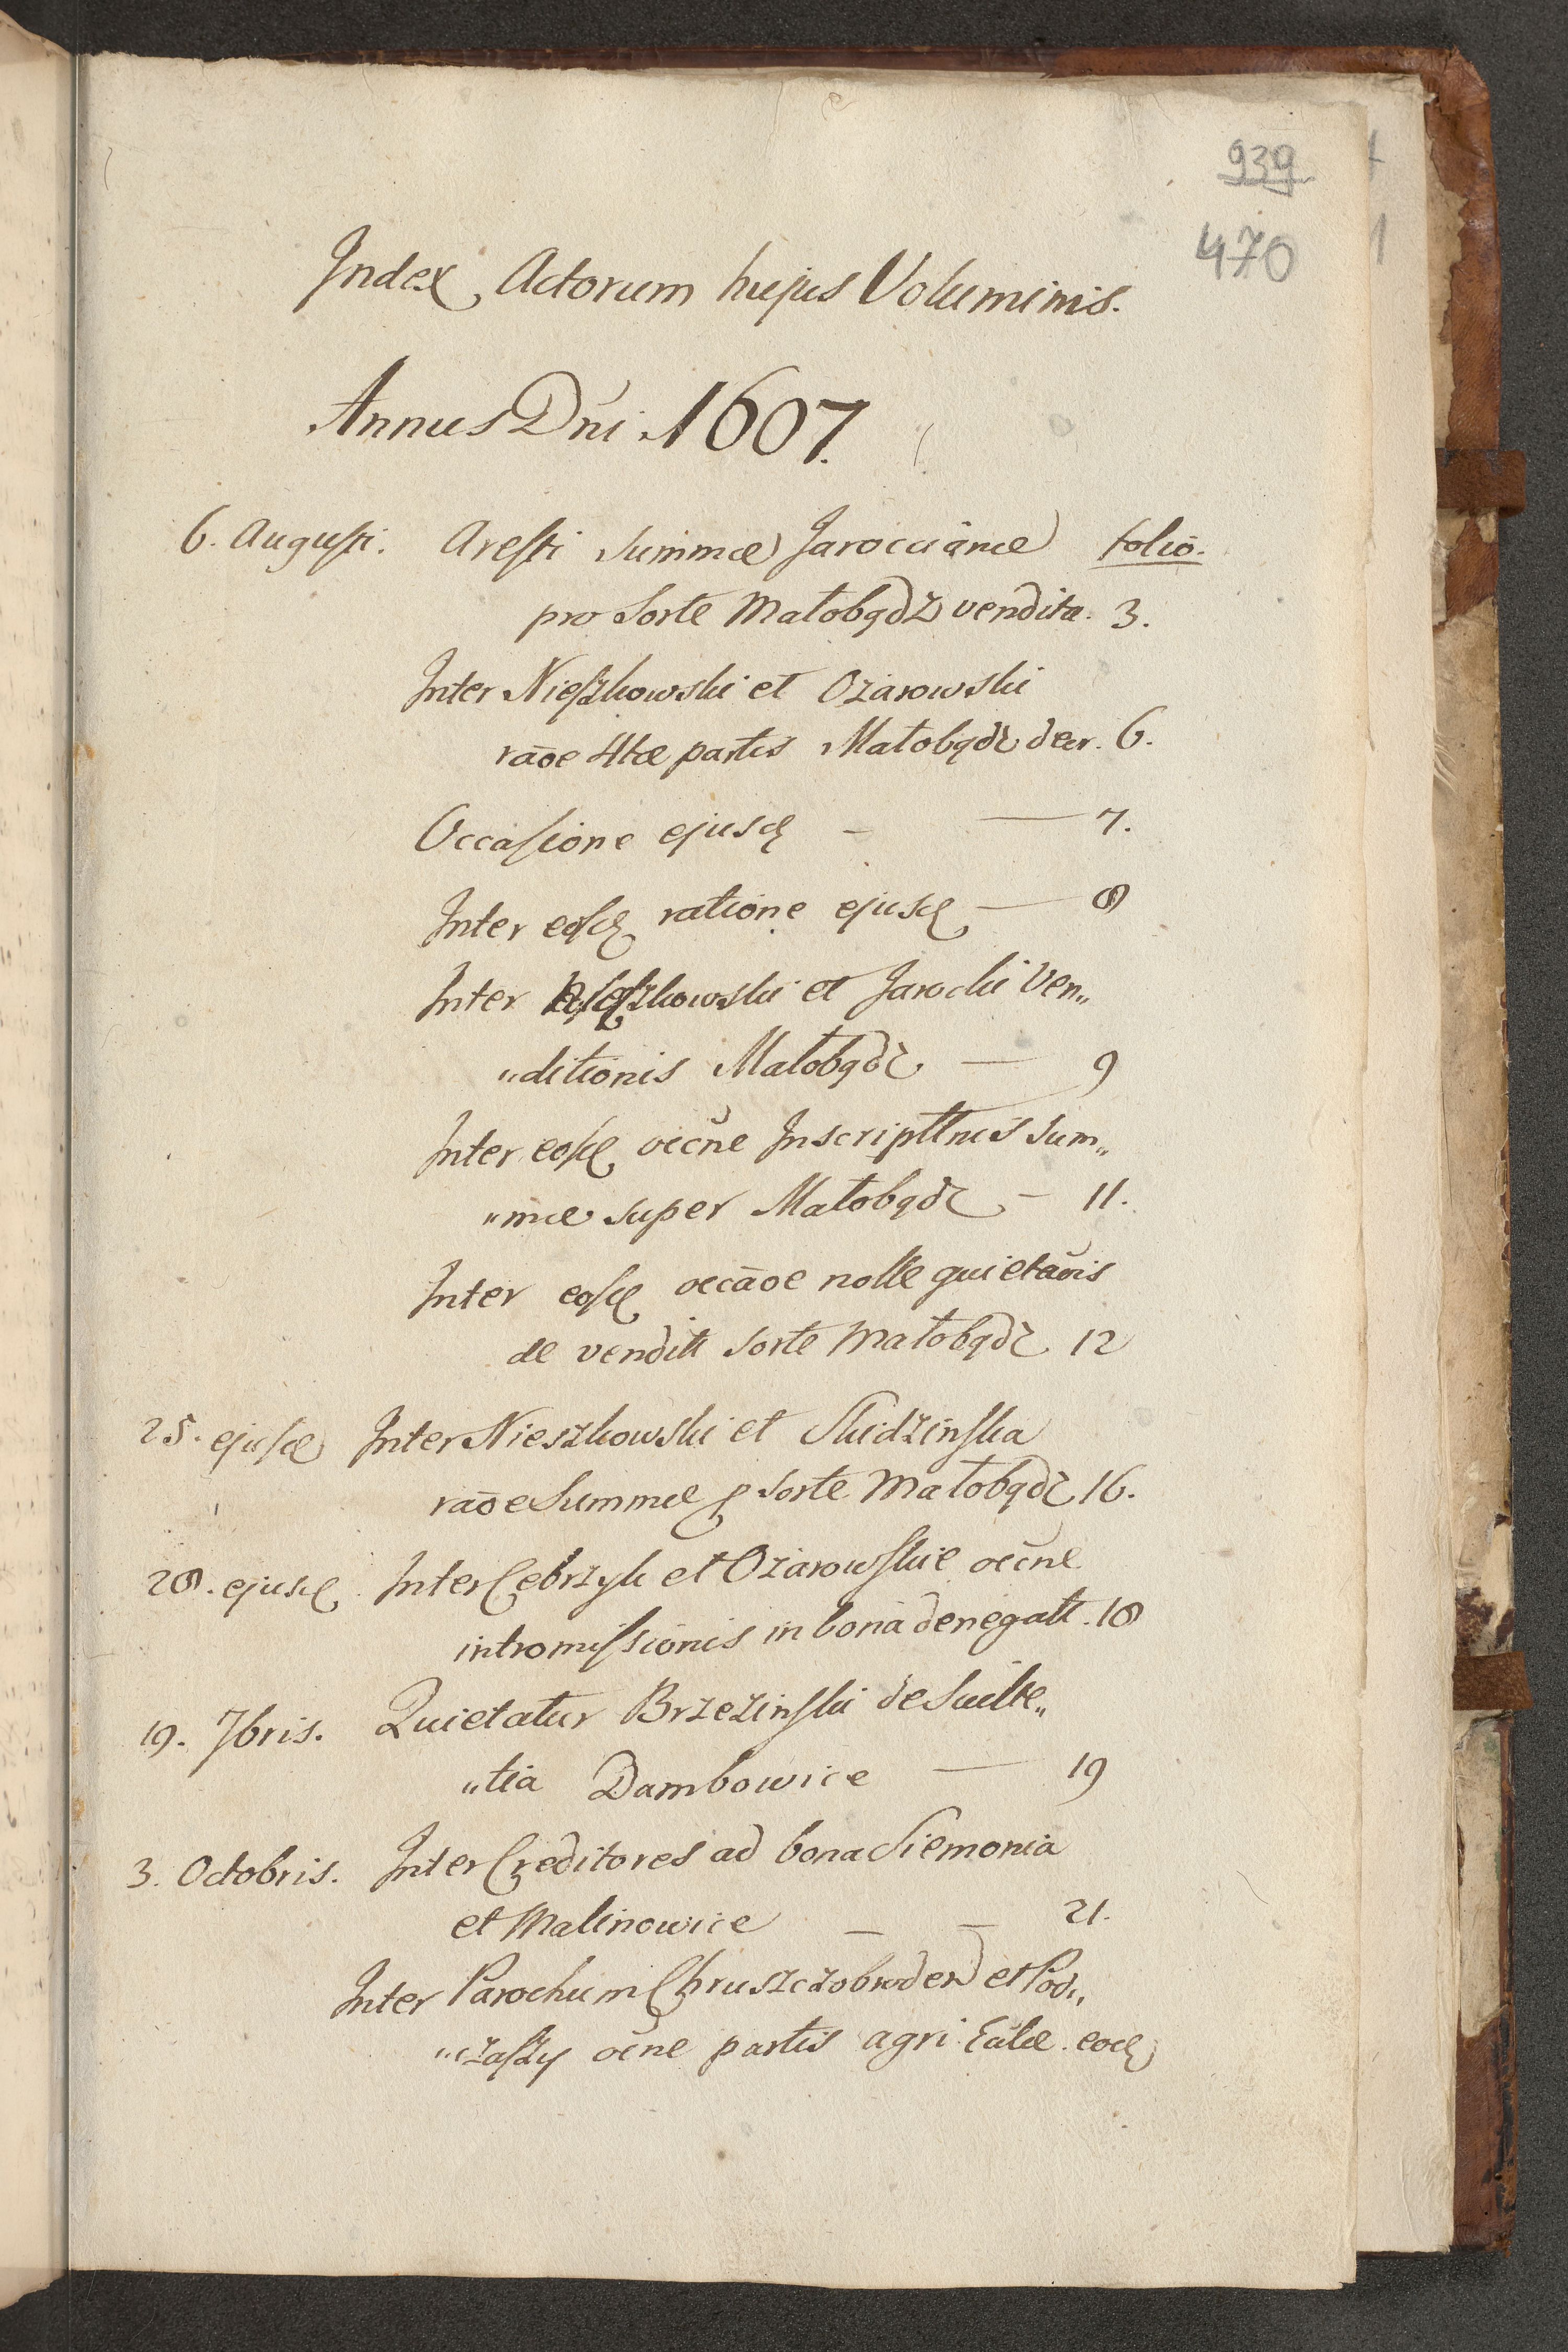 939
470
Index Actorum hujus Voluminis.
Annus Dni 1607.
6. Augusti. Aresti Summæ Jarocciānæ folio.
pro Sorte Małobądz vendita. 3.
Inter Nieszkowski et Ożarowski
rāōe 4tæ partis Małobądz decr. 6.
Occasione ejusd — 7.
Inter eosd ratione ejusd — 8
Inter Nieszkowski et Jarocki Ven„
„ditionis Małobądz — 9
Inter eosd occne Inscripttnis Sum„
„mæ super Małobądz — 11.
Inter eosd occāōe nolle quietāōis
de venditt Sorte Małobądz 12
25. ejusd Inter Nieszkowski et Skidzinska
rāōe Summæ p Sorte Małobądz 16.
28. ejusd Inter Cebrzyk et Ożarowskie occne
intromissionis in bona denegatt. 18
19. 7bris. Quietatur Brzezinski de Scult„
„tia Dambowice — 19
3. Octobris. Inter Creditores ad bona Siemonia
et Malinowice — — 21.
Inter Parochum Chruszczobroden et Pod„
„czaszy ocne partis agri Eālæ. eod